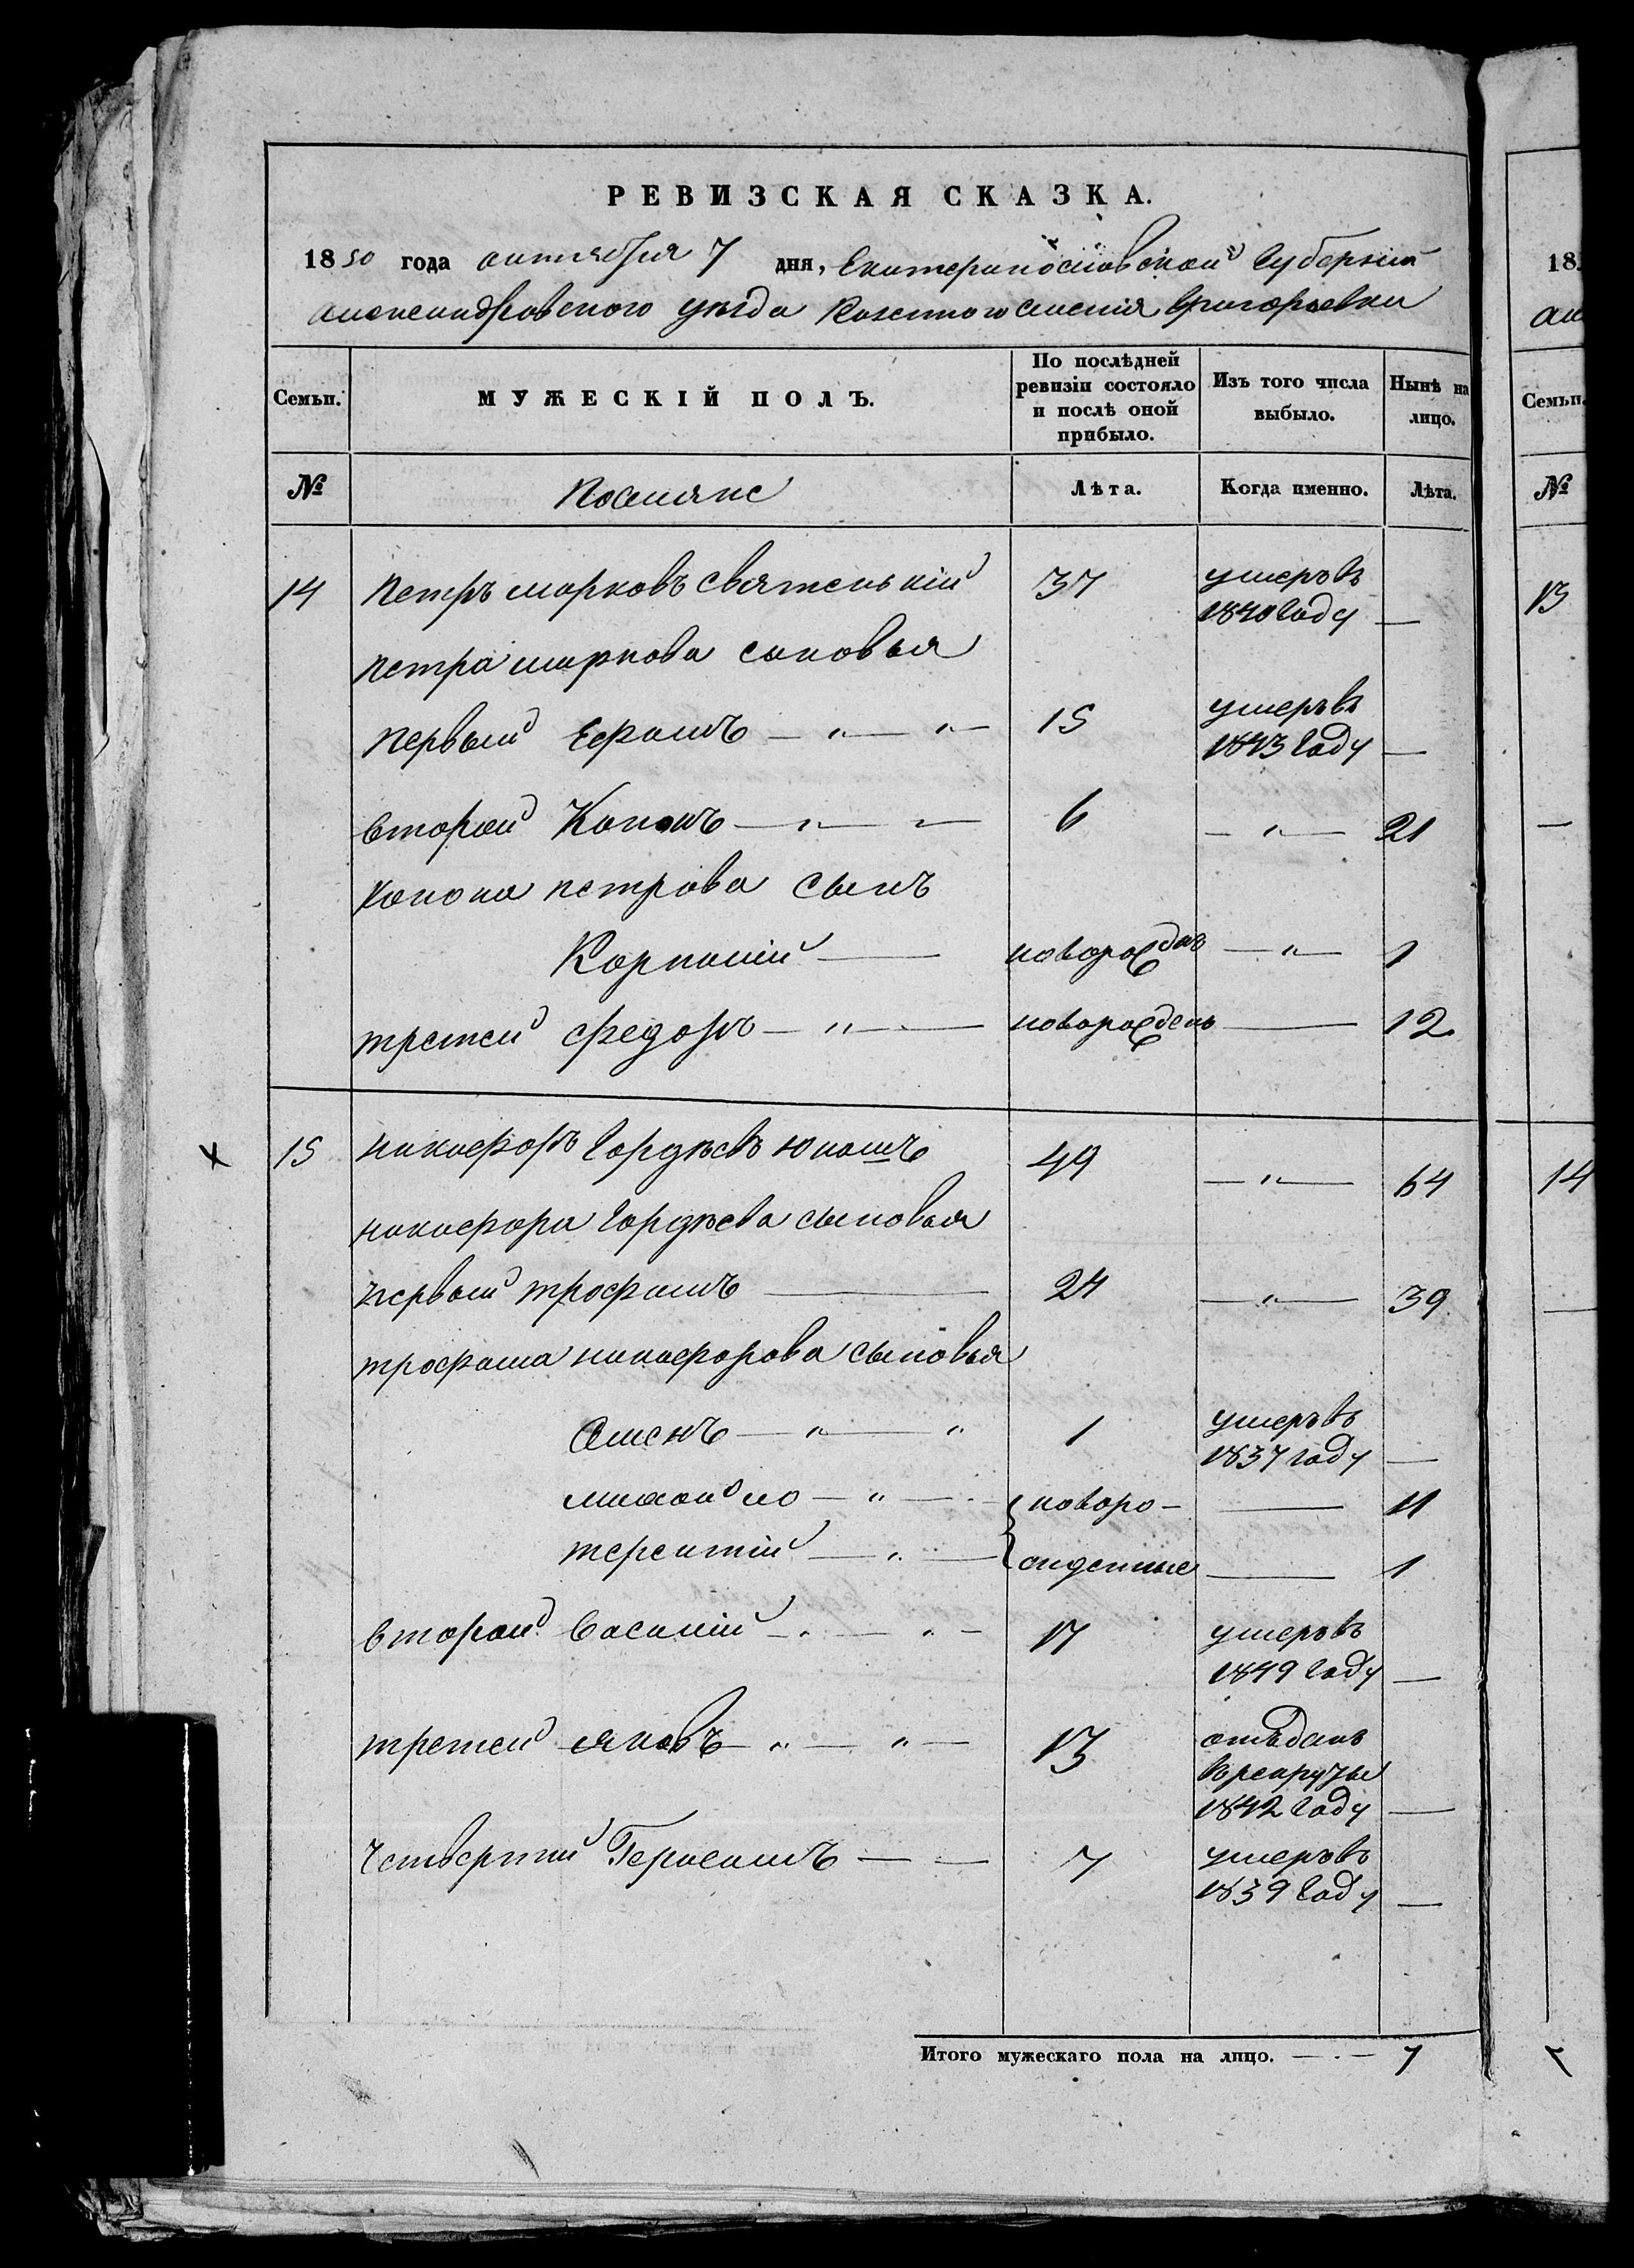 РЕВИЗСКАЯ СКАЗКА.
1850 года октября 7 дня, Екатеринославской Губернии
Александровского уѣзда Казенного Селенія Григорьевки
Семьи. МУЖЕСКІЙ ПОЛЪ. По послѣдней ревизіи состояло и послѣ оной прибыло. Изъ того числа выбыло. Нынѣ на лицо.
№ Поселяне Лѣта. Когда именно. Лѣта.
14 Петръ марковъ Святенькій 37 умеръ въ 1840 Году —
Петра маркова сыновья
Первый Ефимъ — " — " — 15 умеръ въ 1843 Году —
второй Кононъ — " — 6 — " — 21
Конона петрова сынъ
Корнилій — новорожденъ — " — 1
третей Федоръ — " — новорожденъ — 12
15 никифоръ Гордѣевъ Юнашъ 49 — " — 64
никифора Гордѣева сыновья
первый трофимъ — 24 — " — 39
трофима никифорова сыновья
Семенъ — " — " 1 умеръ въ 1837 году —
михайло — " — новоро- — 11
терентій — " — жденные — 1
второй Василій — " — " — 17 умеръ въ 1849 Году —
третей яковъ — " — " — 13 отъданъ врекруты 1842 Году —
Четвертый Герасимъ — — 7 умеръ въ 1839 Году —
Итого мужескаго пола на лицо. — 7
18
Ал
Семьи.
№
13
—
14
—